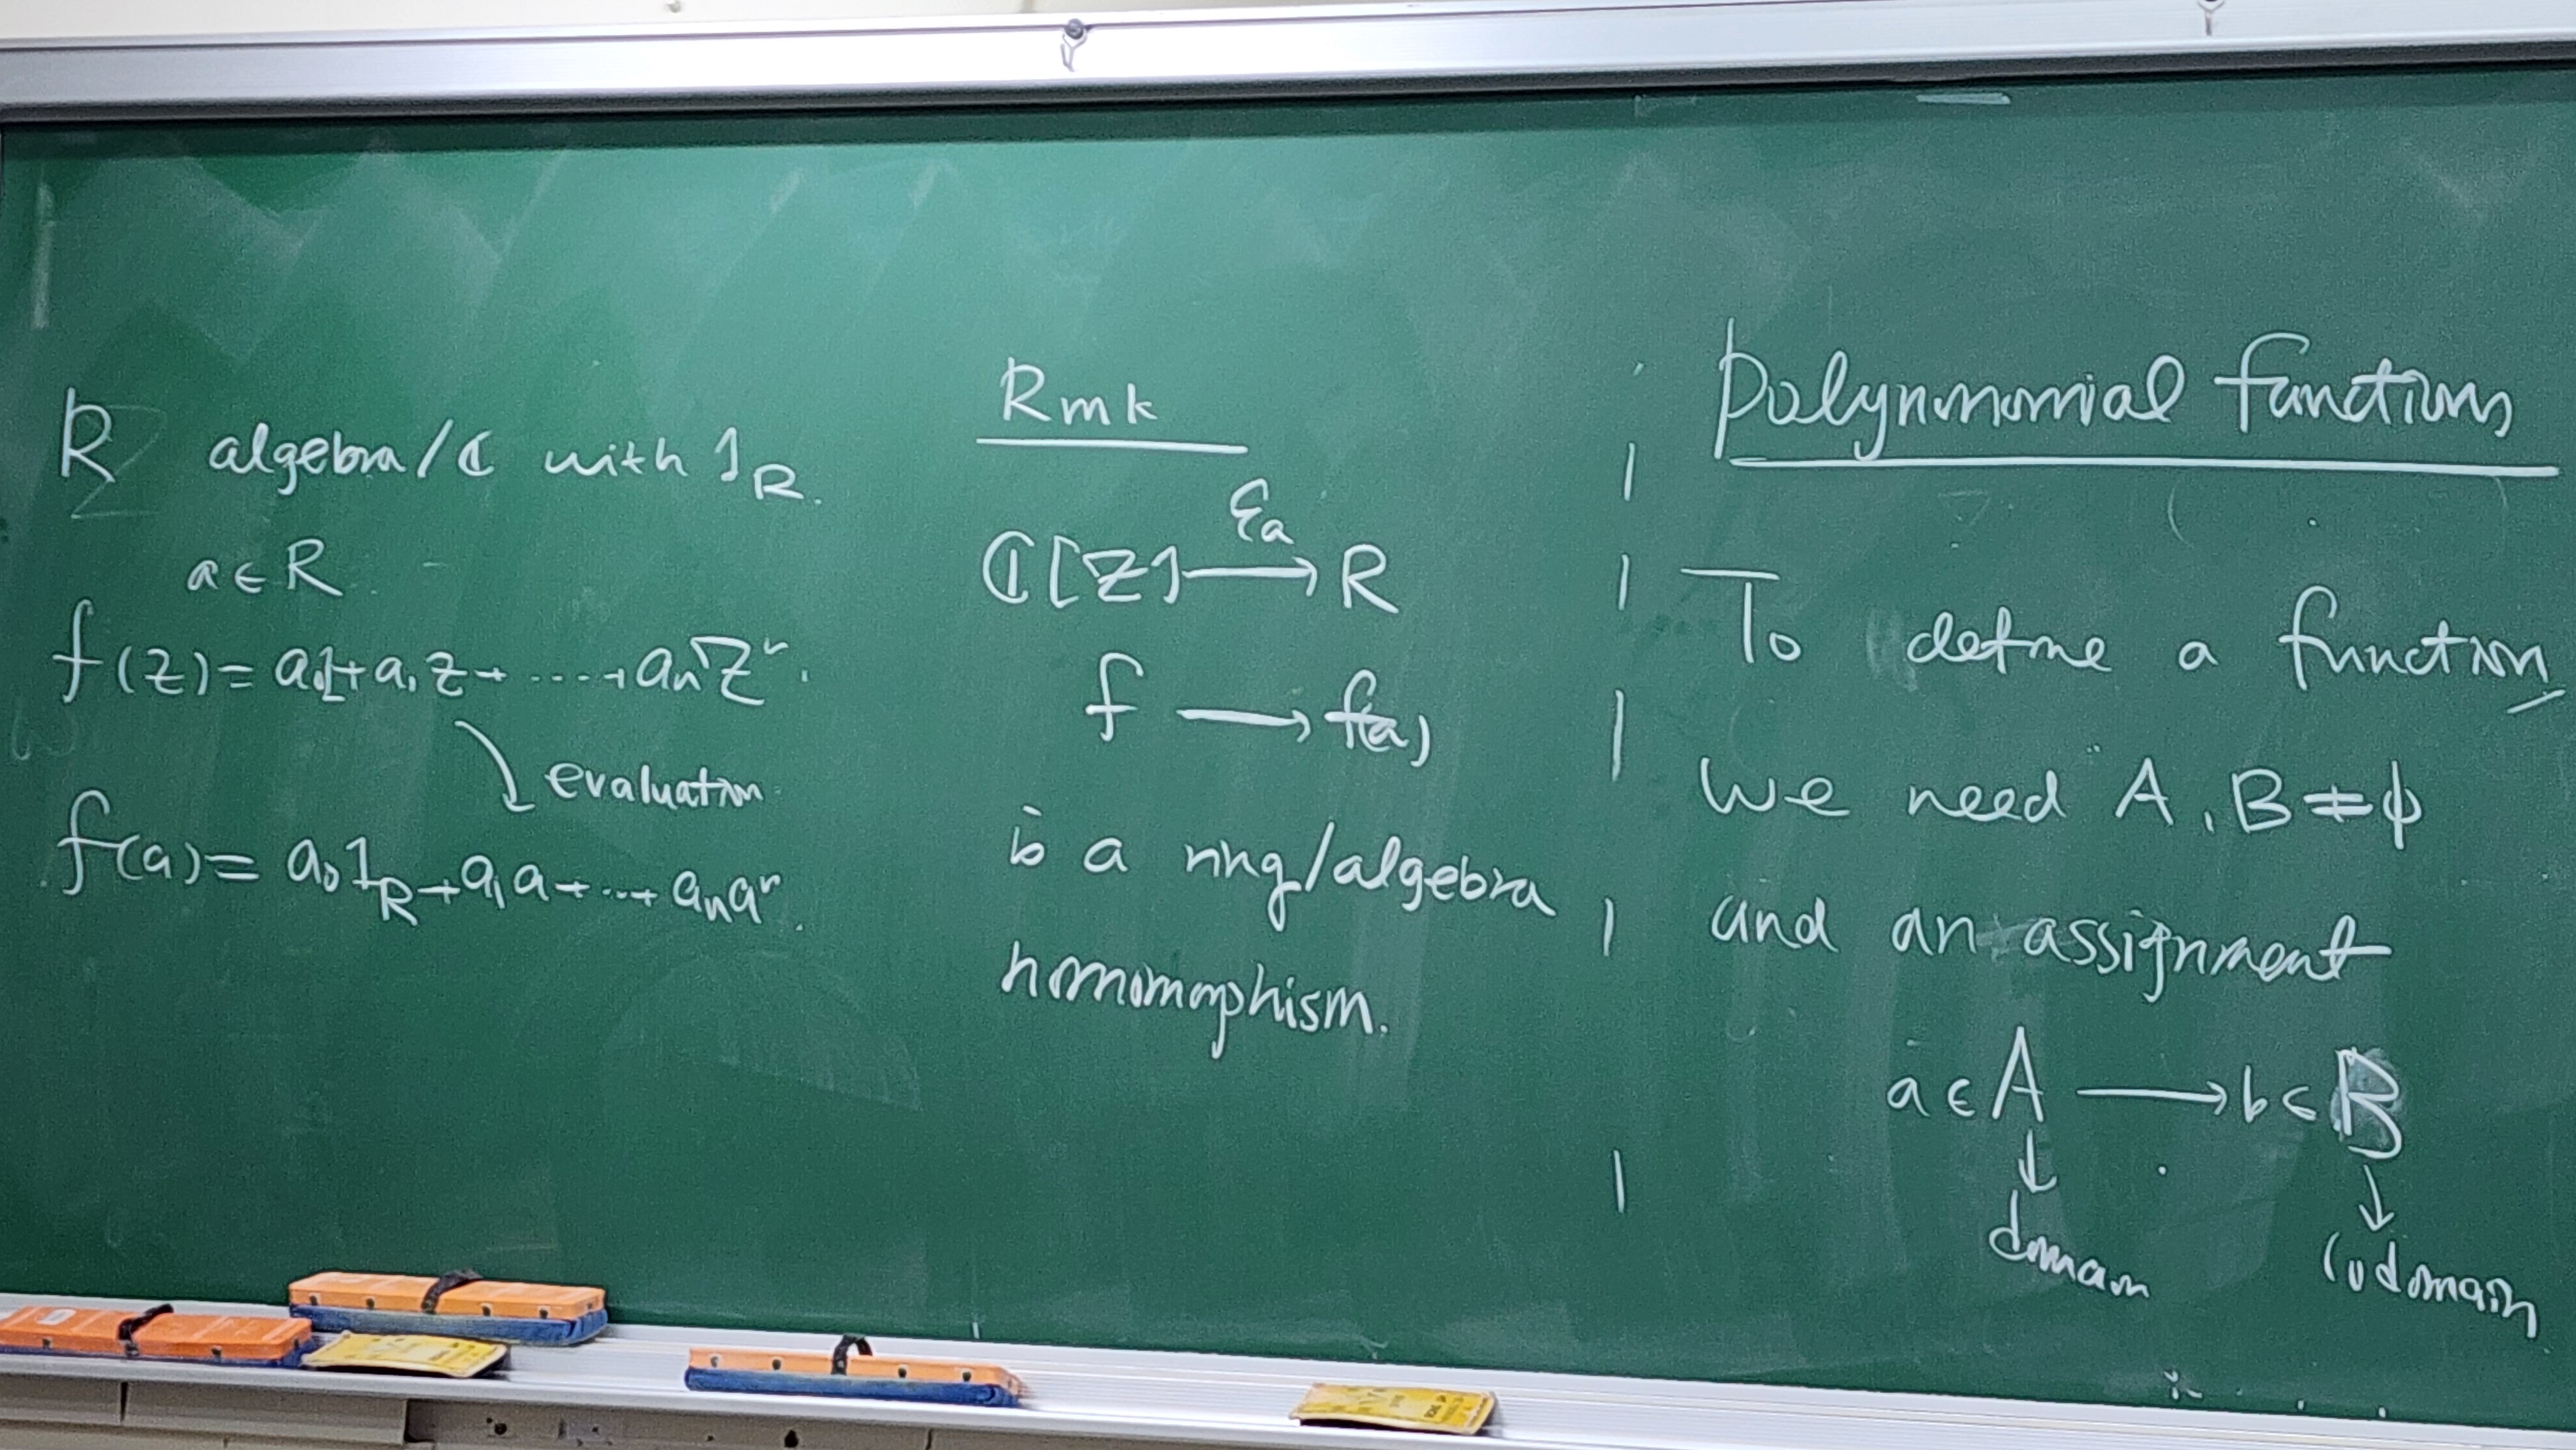 R algebra/ℂ with 1_R.
a ∈ R.
f(z) = a₀1 + a₁z + ····· + aₙzⁿ.
evaluation
f(a) = a₀1_R + a₁a + ··· + aₙaⁿ.
Rmk
ℂ[z] ⟶ R
ε_a
f ⟶ f(a)
is a ring/algebra
homomorphism.
polynomomial functions
To define a function,
we need A, B ≠ ϕ
and an assignment
a ∈ A ⟶ b ∈ B
↓ ↓
domain codomain